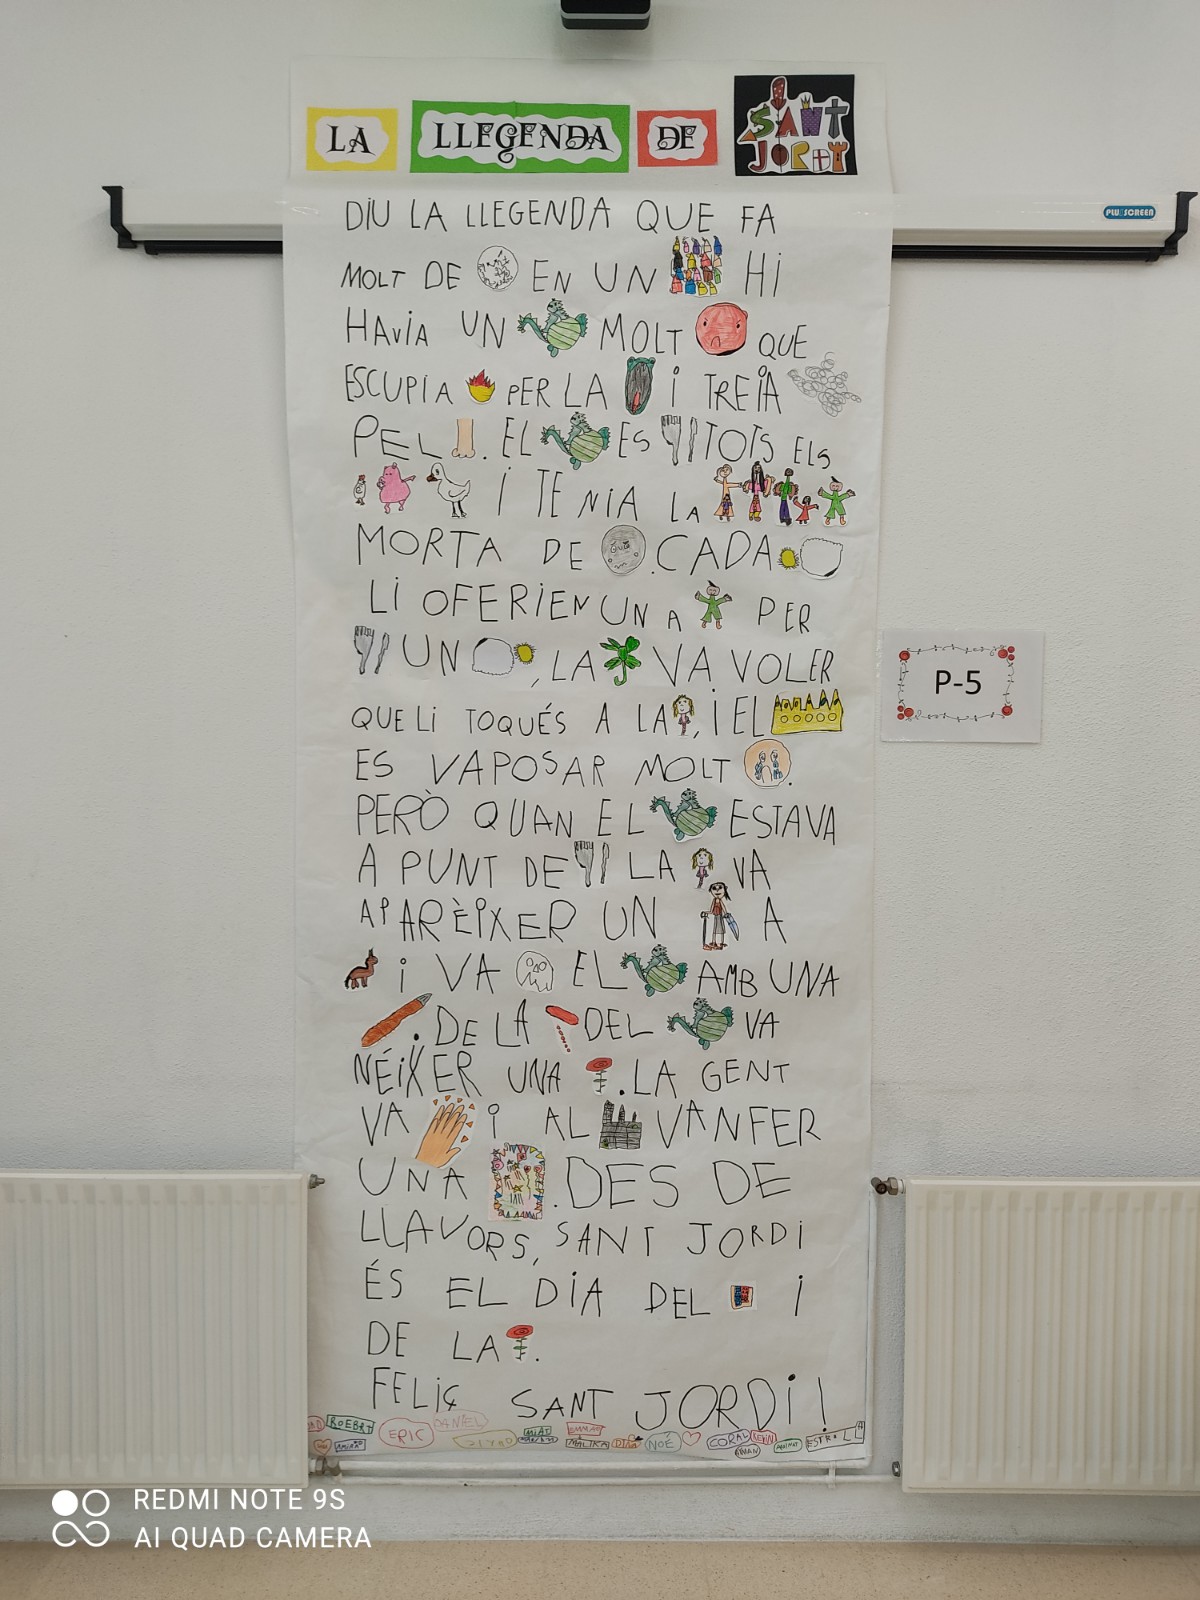 LA LLEGENDA DE SANT JORDI
DIU LA LLEGENDA QUE FA
MOLT DE EN UN HI
HAVIA UN MOLT QUE
ESCUPIA PER LA I TREIA
PEL . EL ES TOTS ELS
I TENIA LA
MORTA DE . CADA
LI OFERIEN UN A PER
UN , LA VA VOLER
QUE LI TOQUÉS A LA , I EL
ES VA POSAR MOLT .
PERÒ QUAN EL ESTAVA
A PUNT DE LA VA
APARÈIXER UN A
I VA EL AMB UNA
. DE LA DEL VA
NÉIXER UNA . LA GENT
VA I AL VAN FER
UNA . DES DE
LLAVORS, SANT JORDI
ÉS EL DIA DEL I
DE LA .
FELIÇ SANT JORDI!
ROEBRT ERIC DANIEL ZIYAD EMMA MALIKA NOÉ CORAL
PLUSCREEN
P-5
REDMI NOTE 9S
AI QUAD CAMERA